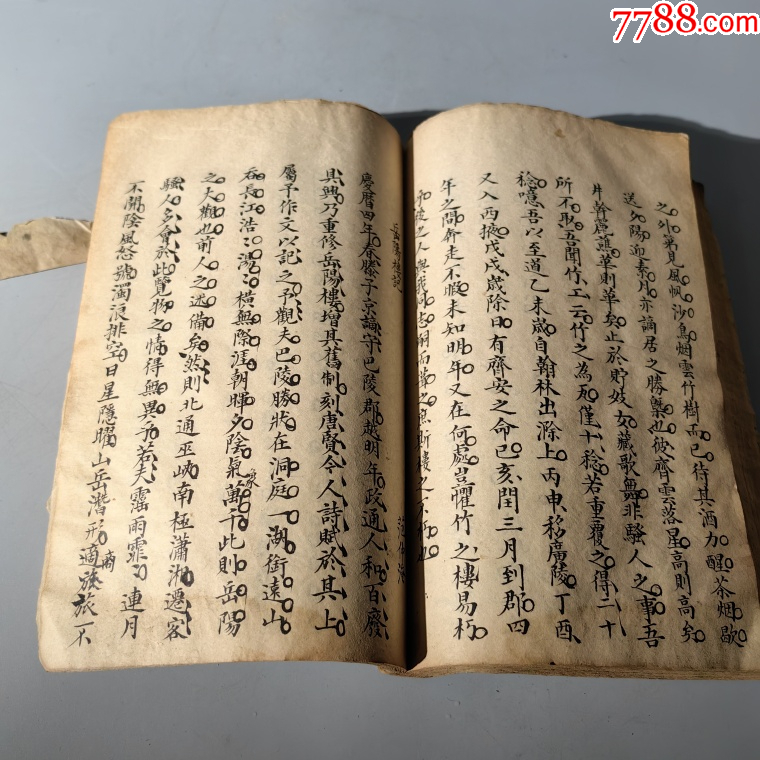 7788.com
之外第見風帆沙鳥烟雲竹樹而已待其酒力醒茶烟歇
送夕陽迎素月亦謫居之勝槩也彼齊雲落星高則高矣
井幹麗譙華則華矣止於貯妓女藏歌舞非騷人之事吾
所不取吾聞竹工云竹之為瓦僅十稔若重覆之得二十
稔噫吾以至道乙未歲自翰林出滁上丙申移廣陵丁酉
又入西掖戊戌歲除日有齊安之命己亥閏三月到郡四
年之間奔走不暇未知明年又在何處豈懼竹之樓易朽
之人與我同志嗣而葺之庶斯樓之不朽也
岳陽樓記
慶曆四年春滕子京謫守巴陵郡越明年政通人和百廢
具興乃重修岳陽樓增其舊制刻唐賢今人詩賦於其上
屬予作文以記之予觀夫巴陵勝狀在洞庭一湖銜遠山
吞長江浩〻湯〻橫無際涯朝暉夕陰氣象萬千此則岳陽
之大觀也前人之述備矣然則北通巫峽南極瀟湘遷客
騷人多會於此覽物之情得無異乎若夫霪雨霏〻連月
不開陰風怒號濁浪排空日星隱曜山岳潛形商旅不